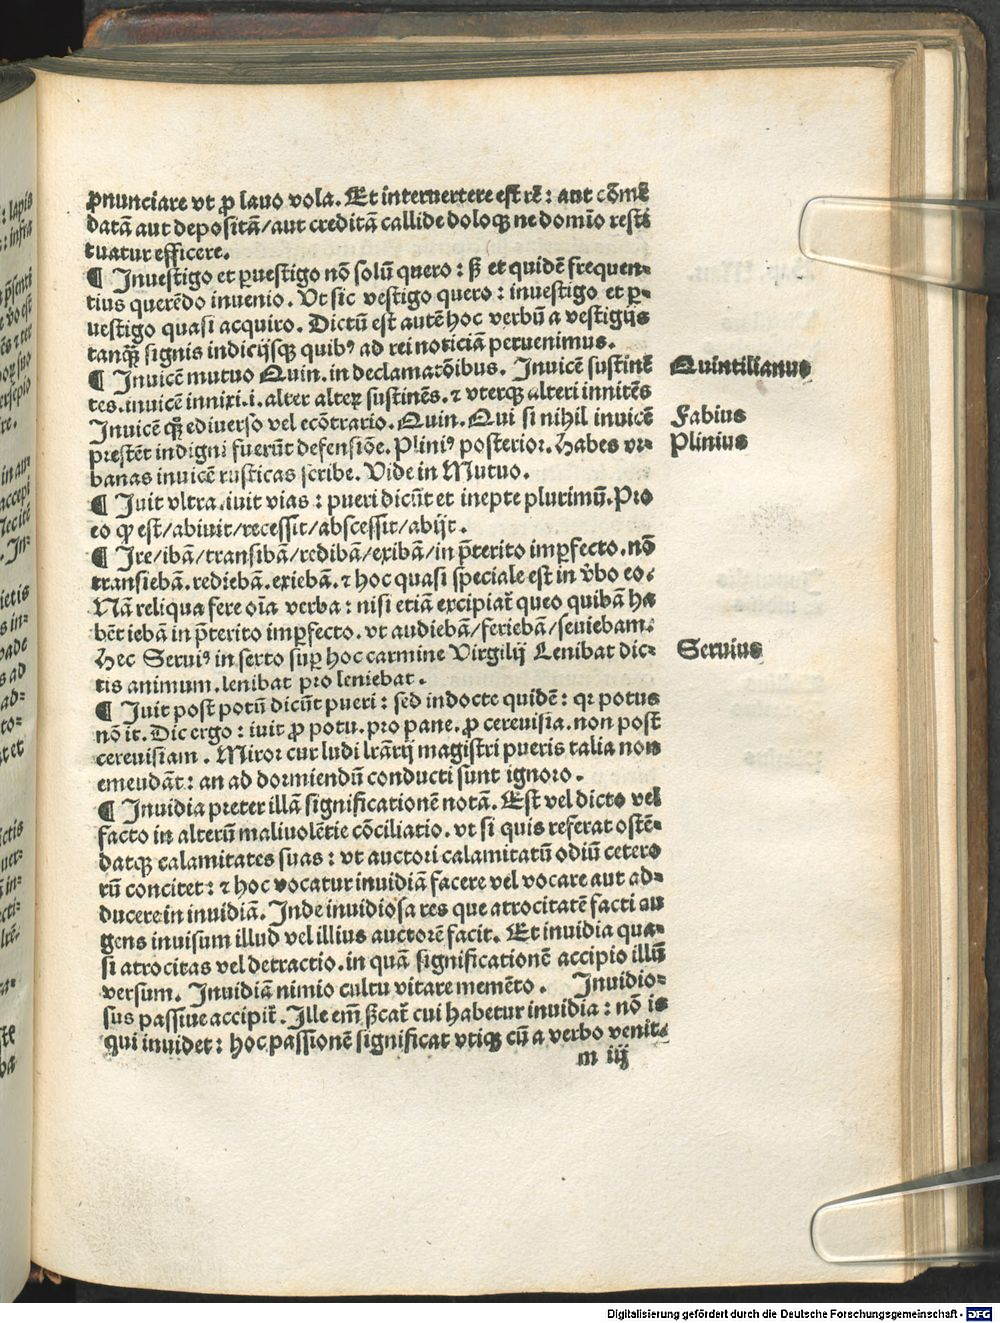 ꝓnunciare vt ꝓ lauo vola. Et interuertere est rē: aut cōmē
datā aut depositā/aut creditā callide doloqꝫ ne domīo resti
tuatur efficere.
¶ Inuestigo et ꝑuestigo nō solū quero: sꝫ et quidē frequen-
tius querēdo inuenio. Vt sic vestigo quero: inuestigo et ꝑ-
uestigo quasi acquiro. Dictū est autē hoc verbū a vestigijs
tanqꝫ signis indicijsqꝫ quibꝰ ad rei noticiā peruenimus.
¶ Inuicē mutuo Quin. in declamatōibus. Inuicē sustinē
tes. inuicē innixi. i. alter alteꝝ sustinēs. ⁊ vterqꝫ alteri innitēs
Inuicē qꝫ̄ ediuerso vel ecōtrario. Quin. Qui si nihil inuicē
prestēt indigni fuerūt defensiōe. Pliniꝰ posterior. Habes vr-
banas inuicē rusticas scribe. Vide in Mutuo.
¶ Iuit vltra. iuit vias: pueri dicūt et inepte plurimū. Pro
eo qꝙ est/abiuit/recessit/abscessit/abijt.
¶ Ire/ibā/transibā/redibā/exibā/in p̄terito imꝑfecto. nō
transiebā. rediebā. exiebā. ⁊ hoc quasi speciale est in v̄bo eo.
Nā reliqua fere oīa verba: nisi etiā excipiat᷑ queo quibā ha
bēt iebā in p̄terito imꝑfecto. vt audiebā/feriebā/seuiebam.
Hec Seruiꝰ in sexto suꝑ hoc carmine Virgilij Lenibat dic-
tis animum. lenibat pro leniebat.
¶ Iuit post potū dicūt pueri: sed indocte quidē: qꝛ potus
nō it. Dic ergo: iuit ꝓ potu. pro pane. ꝓ cereuisia. non post
cereuisiam. Miror cur ludi lr̄arij magistri pueris talia non
emeudāt: an ad dormiendū conducti sunt ignoro.
¶ Inuidia preter illā significationē notā. Est vel dicto vel
facto in alterū maliuolētie cōciliatio. vt si quis referat ostē-
datqꝫ calamitates suas: vt auctori calamitatū odiū cetero
rū concitet: ⁊ hoc vocatur inuidiā facere vel vocare aut ad-
ducere in inuidiā. Inde inuidiosa res que atrocitatē facti au
gens inuisum illud vel illius auctorē facit. Et inuidia qua-
si atrocitas vel detractio. in quā significationē accipio illū
versum. Inuidiā nimio cultu vitare memēto. Inuidio-
sus passiue accipit᷑. Ille em̄ sꝫcat᷑ cui habetur inuidia: nō is
qui inuidet: hoc passionē significat vtiqꝫ cū a verbo venit.
m iij
Quintilianus
Fabius
Plinius
Seruius
Digitalisierung gefördert durch die Deutsche Forschungsgemeinschaft - DFG